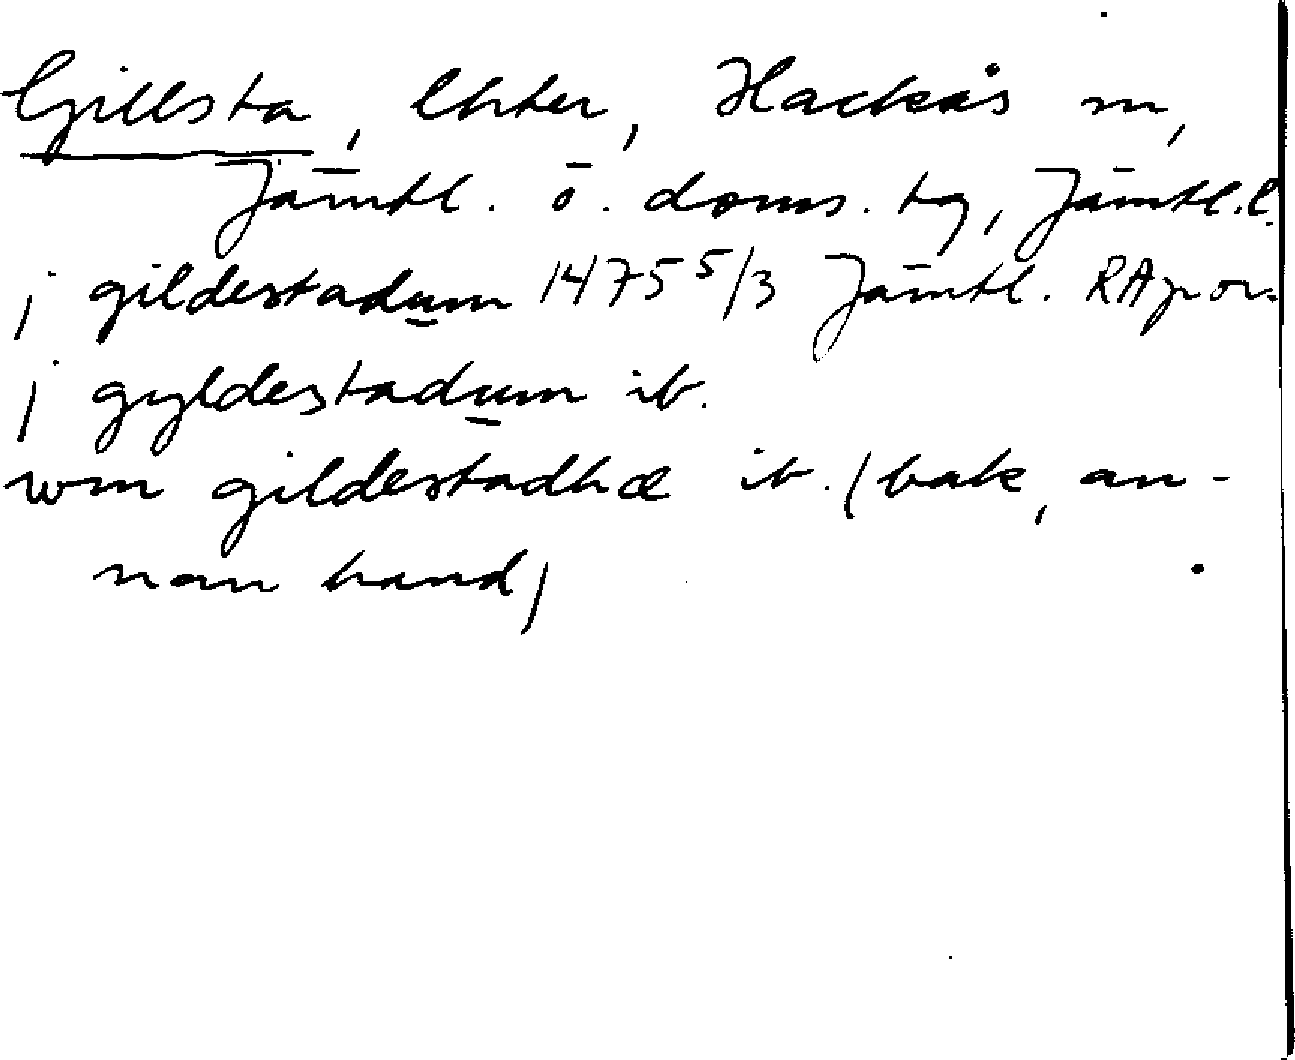 Gillsta, Ehter, Hackås sn,
Jämtl. ö. doms. tg, Jämtl.l.
j gildestadum 1475 5/3 Jämtl. RApor.
j gyldestadum ib.
wm gildestadhæ ib. (bak, an-
nan hand)